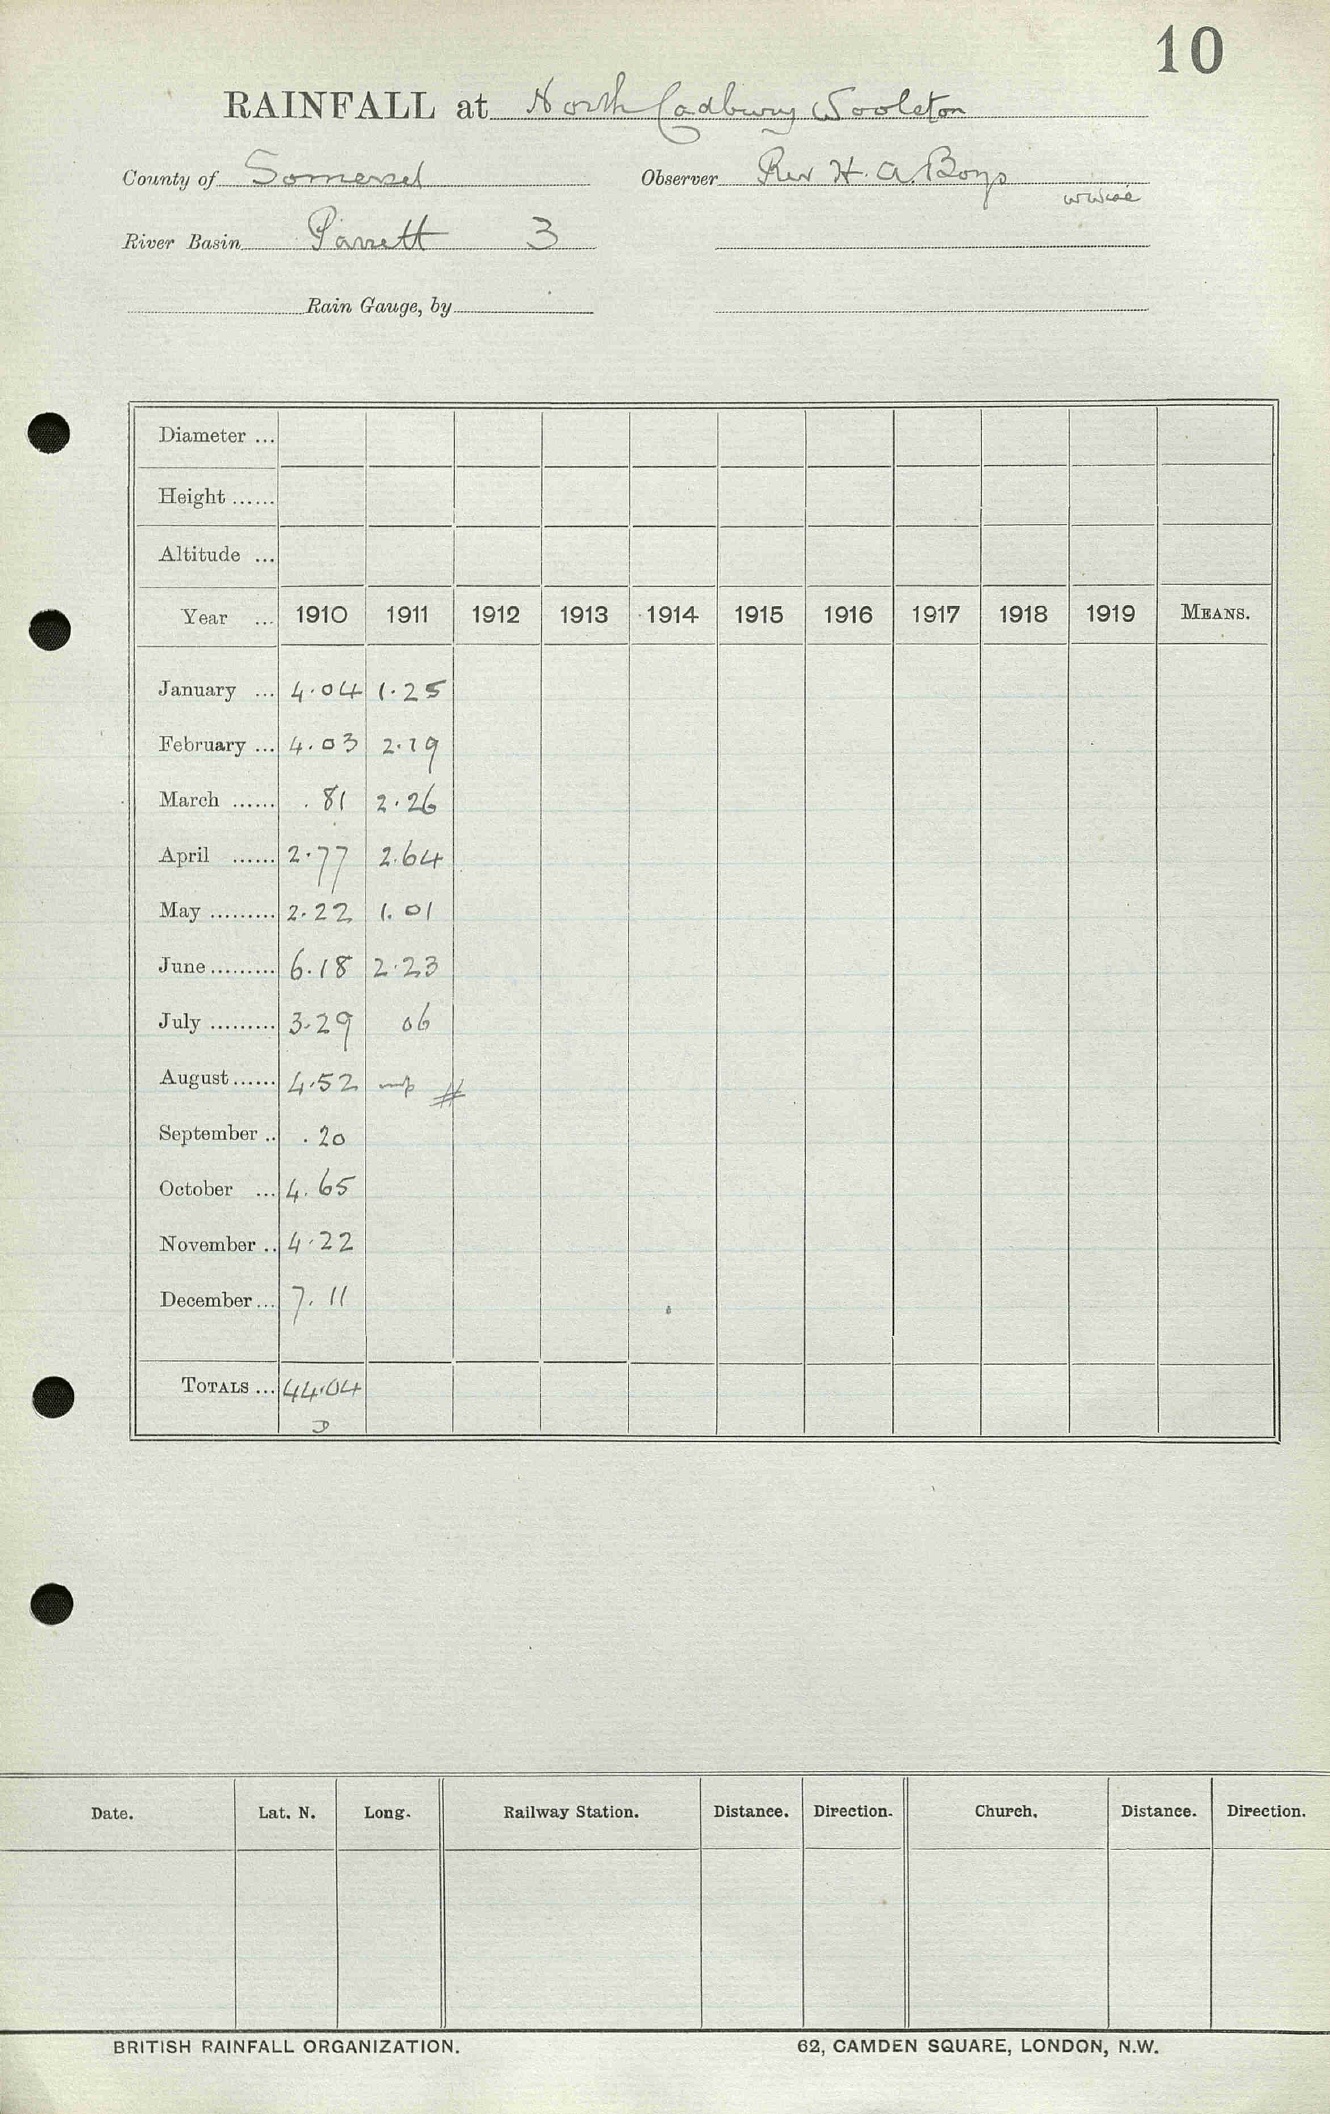 10
RAINFALL at North Cadbury Woolston
County of Somerset Observer Rev H. A. Boys
River Basin Parrett 3
Rain Gauge, by
Diameter ...
Height ......
Altitude ...
Year ... 1910 1911 1912 1913 1914 1915 1916 1917 1918 1919 MEANS.
January ... 4.04 1.25
February ... 4.03 2.19
March ...... .81 2.26
April ...... 2.77 2.64
May ......... 2.22 1.01
June ......... 6.18 2.23
July ......... 3.29 06
August ...... 4.52
September .. .20
October ... 4.65
November .. 4.22
December ... 7.11
TOTALS ... 44.04
Date. Lat. N. Long. Railway Station. Distance. Direction. Church. Distance. Direction.
BRITISH RAINFALL ORGANIZATION. 62, CAMDEN SQUARE, LONDON, N.W.